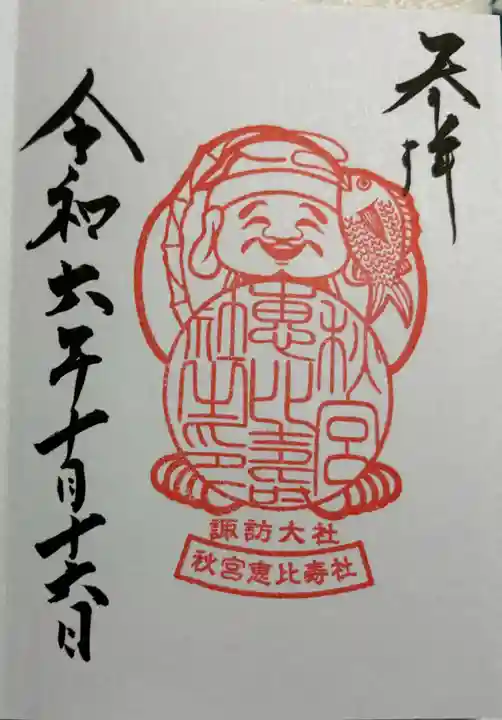 奉拝
秋宮
恵比寿
社之印
諏訪大社
秋宮恵比寿社
令和六年十月十六日